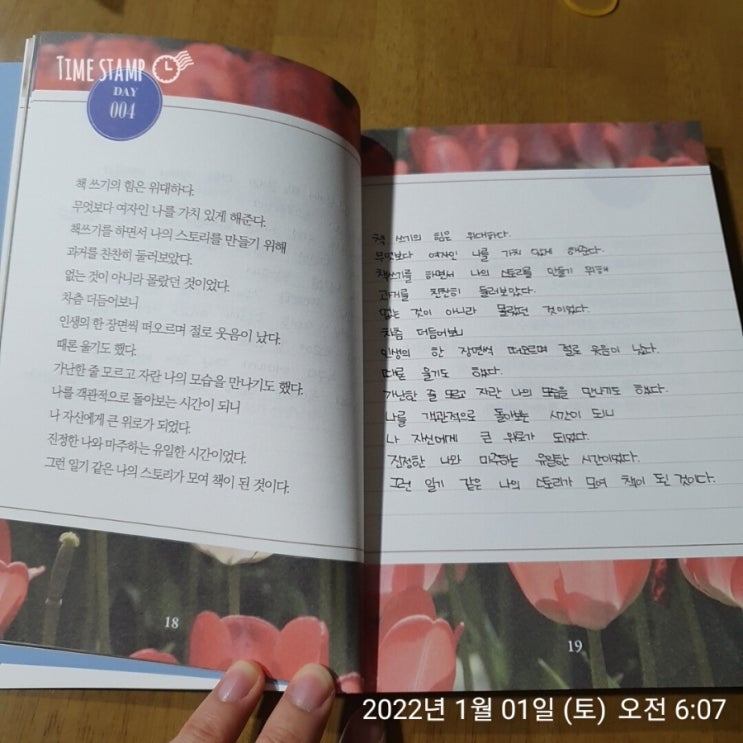 TIME STAMP
DAY
004
책 쓰기의 힘은 위대하다.
무엇보다 여자인 나를 가치 있게 해준다.
책쓰기를 하면서 나의 스토리를 만들기 위해
과거를 찬찬히 둘러보았다.
없는 것이 아니라 몰랐던 것이었다.
차츰 더듬어보니
인생의 한 장면씩 떠오르며 절로 웃음이 났다.
때론 울기도 했다.
가난한 줄 모르고 자란 나의 모습을 만나기도 했다.
나를 객관적으로 돌아보는 시간이 되니
나 자신에게 큰 위로가 되었다.
진정한 나와 마주하는 유일한 시간이었다.
그런 일기 같은 나의 스토리가 모여 책이 된 것이다.
18
책 쓰기의 힘은 위대하다.
무엇보다 여자인 나를 가치 있게 해준다.
책쓰기를 하면서 나의 스토리를 만들기 위해
과거를 찬찬히 둘러보았다.
없는 것이 아니라 몰랐던 것이었다.
차츰 더듬어보니
인생의 한 장면씩 떠오르며 절로 웃음이 났다.
때론 울기도 했다.
가난한 줄 모르고 자란 나의 모습을 만나기도 했다.
나를 객관적으로 돌아보는 시간이 되니
나 자신에게 큰 위로가 되었다.
진정한 나와 마주하는 유일한 시간이었다.
그런 일기 같은 나의 스토리가 모여 책이 된 것이다.
19
2022년 1월 01일 (토) 오전 6:07